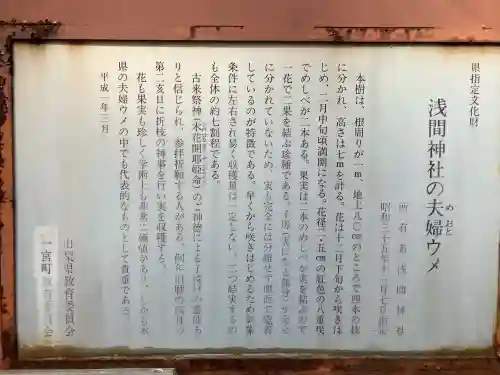 県指定文化財
浅間神社の夫婦ウメ
めおと
所有者 浅間神社
昭和三十五年十一月七日指定
本樹は、根廻りが一m、地上八〇cmのところで四本の枝
に分かれ、高さは七mを計る。花は十二月下旬から咲きは
じめ、二月中旬頃満開になる。花径二・五cmの紅色の八重咲
でめしべが二本ある。果実は二本のめしべが実を結ぶので
一花で二果を結ぶ珍種である。子房
に分かれていないため、実も完全には分離せず側面で癒着
しているのが特徴である。早くから咲きはじめるため気象
条件に左右され易く収穫量は一定しない。二つ結実するの
も全体の約七割程である。
古来祭神(木花開耶姫命)のご神徳による子授けの霊梅も
りと信じられ、参拝祈願する人がある。例年旧暦の四月の
第二亥日に折枝の神事を行い実を収穫する。
花も果実も珍しく学術上も非常に価値があり、しかも本
県の夫婦ウメの中でも代表的なものとして貴重である。
平成一年三月
山梨県教育委員会
一宮町教育委員会